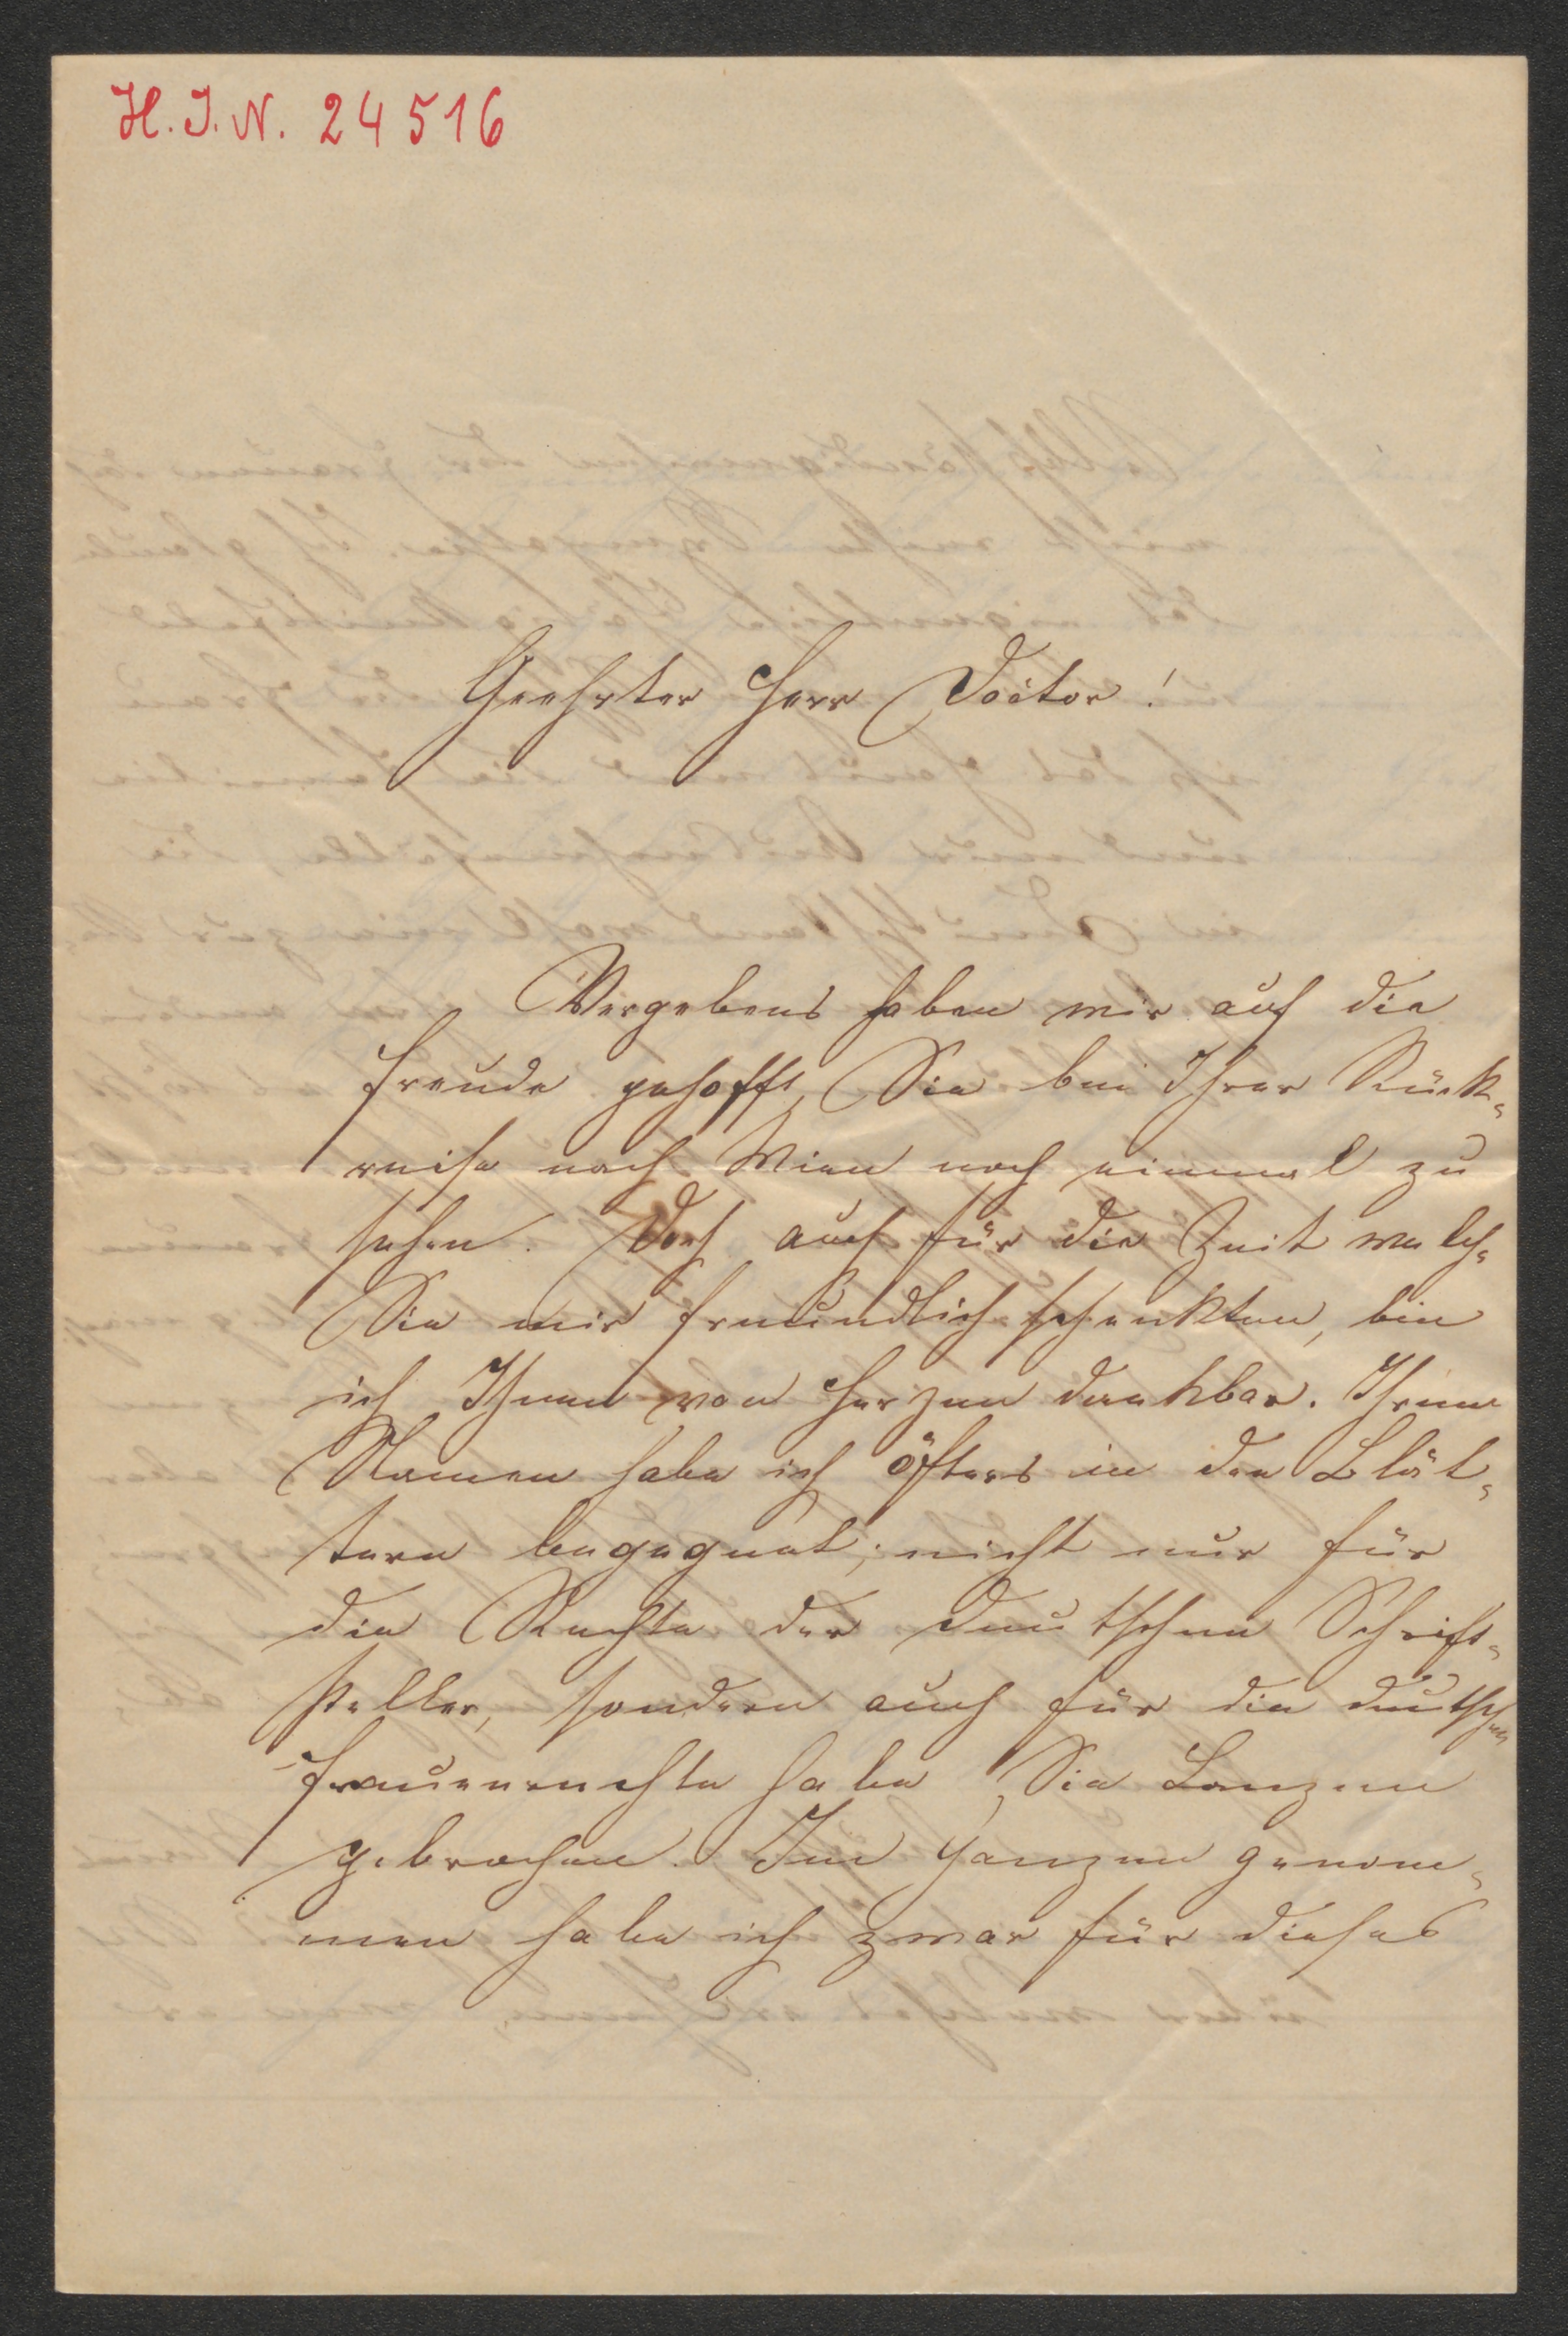 H. I. N. 24516
Geehrter Herr Doctor!
Vergebens haben wir auf die
Freude gehofft, Sie bei Ihrer Rück-
reise nach Wien noch einmal zu
sehen. Doch auch für die Zeit welche
Sie mir freundlich schenkten, bin
ich Ihnen von Herzen dankbar. Ihrem
Namen habe ich öfters in den Blät-
tern begegnet; nicht nur für
die Rechte der deutschen Schrift-
steller, sondern auch für die deutschen
Frauenrechte haben Sie Lanzen
gebrochen. Im Ganzen genom-
men habe ich zwar für dieses